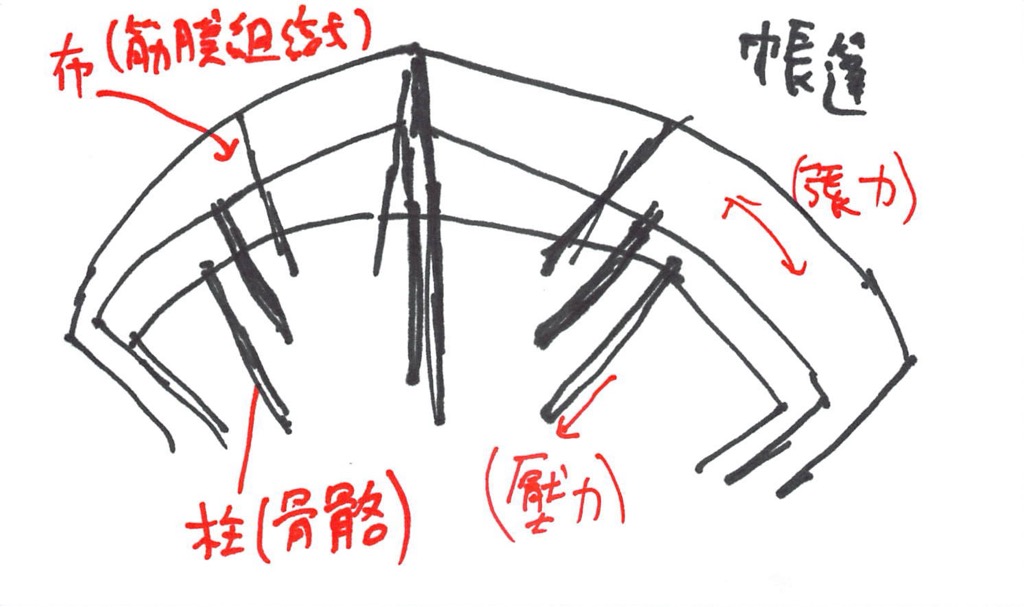 布(筋膜組織)
帳篷
(張力)
柱(骨骼)
(壓力)